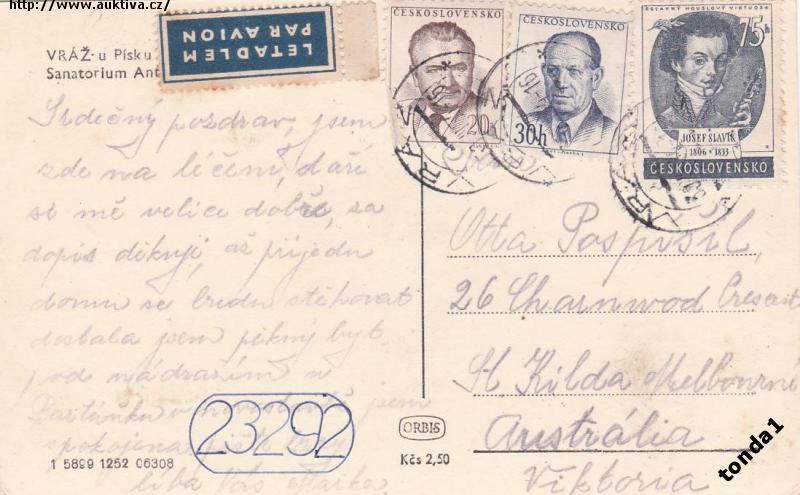 http://www.auktiva.cz/
LETADLEM
PAR AVION
VRÁŽ u Písku
Sanatorium Ant
ČESKOSLOVENSKO
20h
ČESKOSLOVENSKO
30h
ČESKÝ HOUSLOVÝ VIRTUOS
75h
JOSEF SLAVÍK
1806 • 1833
ČESKOSLOVENSKO
Srdečný pozdrav, jsem
zde na léčení, daří
se mě velice dobře, za
dopis děkuji, až přijedu
domu se budu stěhovat
dostala jsem pěkný byt
pod nádražím u
jsem
spokojena
líbá Vás
Otta Pospíšil,
26 Charnwod Crescent
St Kilda Melbourne
Austrália
Viktoria
23292
1 5899 1252 06308
ORBIS
Kčs 2,50
tonda1